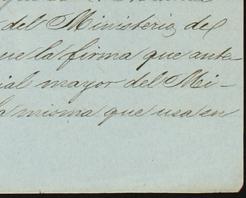 del Ministerio de
ue la firma que ante-
ial mayor del Mi-
la misma que usa en